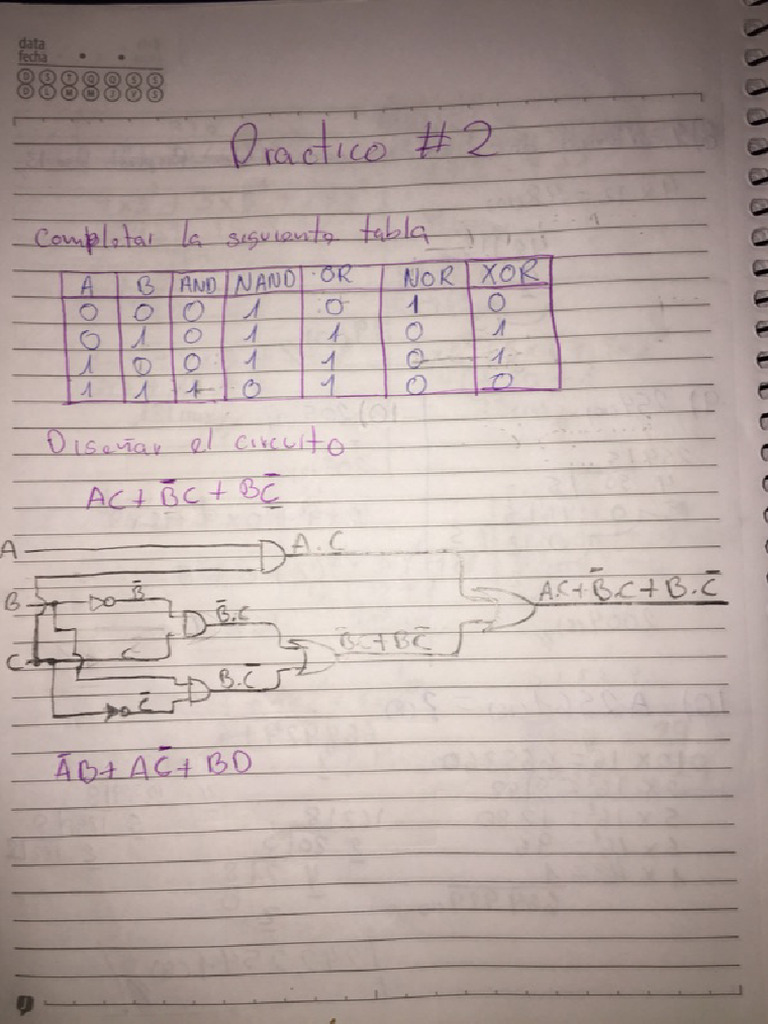 data
fecha
D S T Q Q S S
D L M M J V S
Practico #2
Completar la siguiente tabla
A B AND NAND OR NOR XOR
0 0 0 1 0 1 0
0 1 0 1 1 0 1
1 0 0 1 1 0 1
1 1 1 0 1 0 0
Diseñar el circuito
AC + B̅C + BC̅
A A.C
B B̅ B̅.C AC + B̅.C + B.C̅
C C B̅C + BC̅
C̅ B.C̅
A̅B + AC̅ + BD